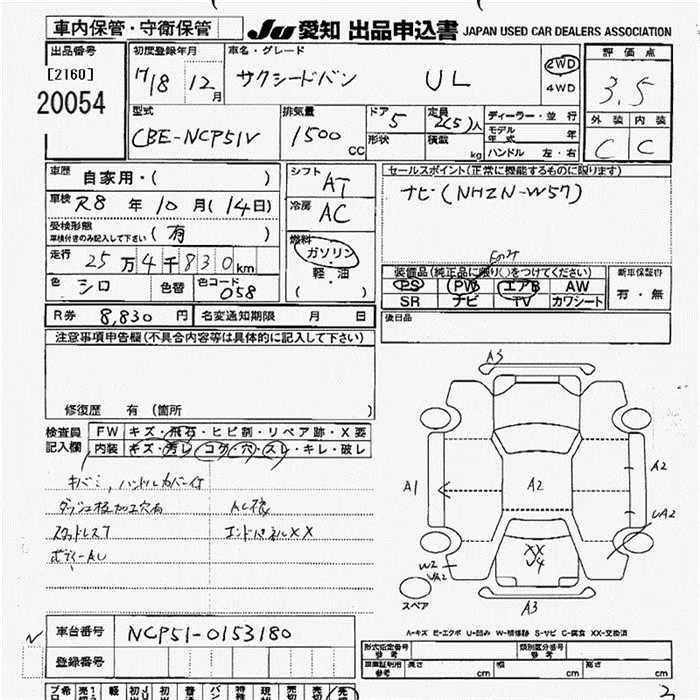 車内保管・守衛保管 JU 愛知 出品申込書 JAPAN USED CAR DEALERS ASSOCIATION
出品番号 初度登録年月 車名・グレード 評価点
[2160] 20054 H18 12月 サクシードバン UL 2WD 4WD 3.5
型式 排気量 ドア 5 定員 2(5)人 ディーラー・並行 外装 内装
CBE-NCP51V 1500cc 形状 積載 kg モデル年式 年 ハンドル 左・右 C C
車歴 自家用・( ) シフト AT セールスポイント(正常に機能するものに限ります)
車検 R8年10月(14日) 冷房 AC ナビ(NHZN-W57)
受検形態 車検付きのみ記入して下さい (有)
燃料 ガソリン 軽・油 ( )
走行 25万4千830km 装備品(純正品に限り○をつけてください) 新車保証書
色 シロ 色替 色コード 058 PS PW エアB AW 有・無
SR ナビ TV カワシート
R券 8,830円 名変通知期限 月 日 後日品
注意事項申告欄(不具合内容等は具体的に記入して下さい)
修復歴 有(箇所 )
検査員記入欄 FW キズ・飛石・ヒビ割・リペア跡・X要
内装 キズ・汚レ・コゲ・穴・スレ・キレ・破レ
キバミ,ハンドルカバー付
ダッシュ板加工穴有
スタッドレス7 エンドパネルXX
ボディーAU
A3
A1 A2 A2
UA2
XX
W2 UA2
スペア A3
A-キズ E-エクボ U-凹み W-補修跡 S-サビ C-腐食 XX-交換済
車台番号 NCP51-0153180
登録番号
形式指定番号 参考 類別区分番号 参考
参考 長さ cm 幅 cm 高さ cm